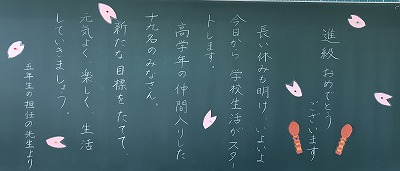 進級 おめでとう
ございます
長い休みも明け、いよいよ
今日から 学校生活がスター
トします。
高学年の仲間入りした
十九名のみなさん、
新たな目標をたてて、
元気よく 楽しく 生活
していきましょう。
五年生の担任の先生より